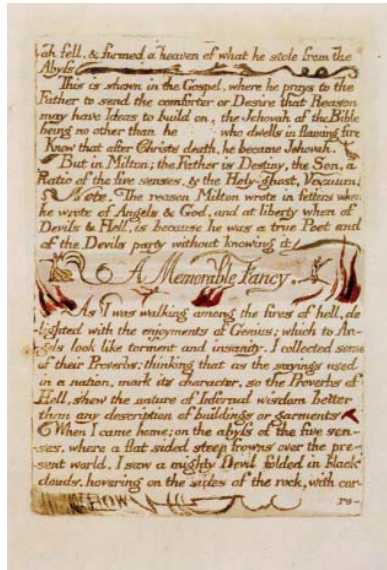 ah fell, & formed a heaven of what he stole from the
Abyss
This is shewn in the Gospel, where he prays to the
Father to send the comforter or Desire that Reason
may have Ideas to build on, the Jehovah of the Bible
being no other than he who dwells in flaming fire
Know that after Christs death, he became Jehovah.
But in Milton; the Father is Destiny, the Son, a
Ratio of the five senses, & the Holy-ghost, Vacuum!
Note. The reason Milton wrote in fetters when
he wrote of Angels & God, and at liberty when of
Devils & Hell, is because he was a true Poet and
of the Devils party without knowing it
A Memorable Fancy.
As I was walking among the fires of hell, de-
lighted with the enjoyments of Genius; which to An-
gels look like torment and insanity. I collected some
of their Proverbs: thinking that as the sayings used
in a nation, mark its character, so the Proverbs of
Hell, shew the nature of Infernal wisdom better
than any description of buildings or garments
When I came home; on the abyss of the five sen-
ses, where a flat sided steep frowns over the pre-
sent world. I saw a mighty Devil folded in black
clouds, hovering on the sides of the rock, with cor-
ro-